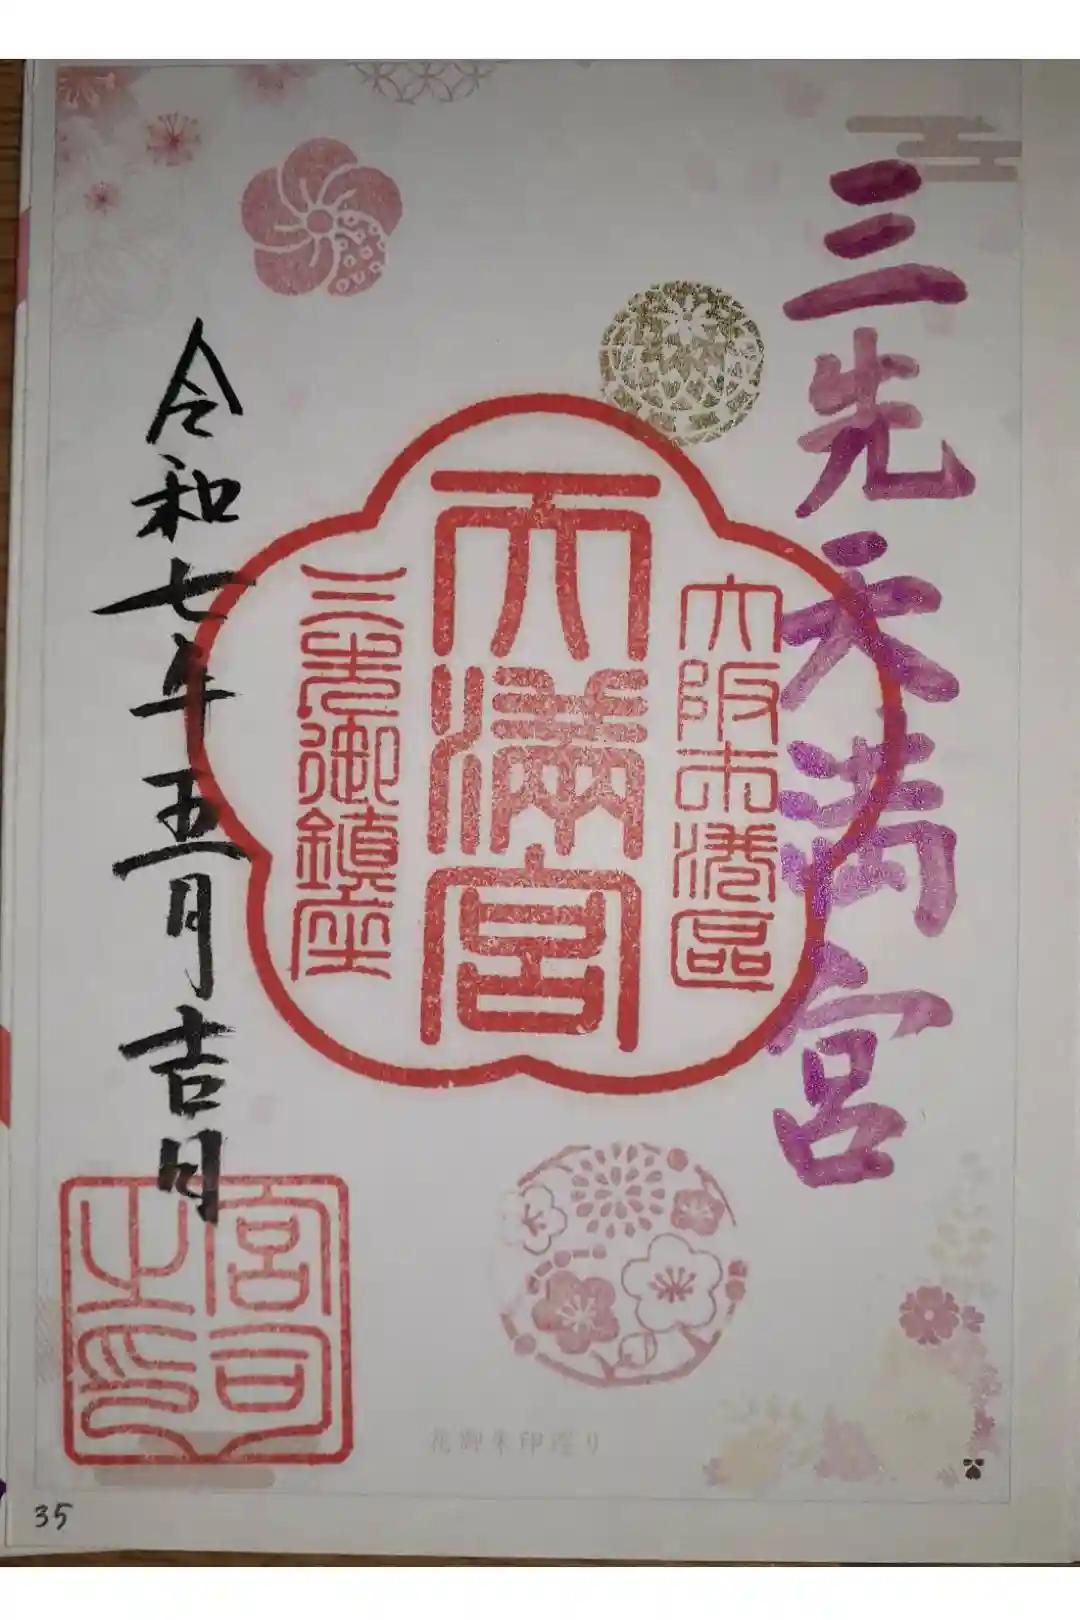 三先天満宮
大阪市港區
天満宮
三先御鎮座
令和七年五月吉日
宮司之印
花御朱印巡り
35